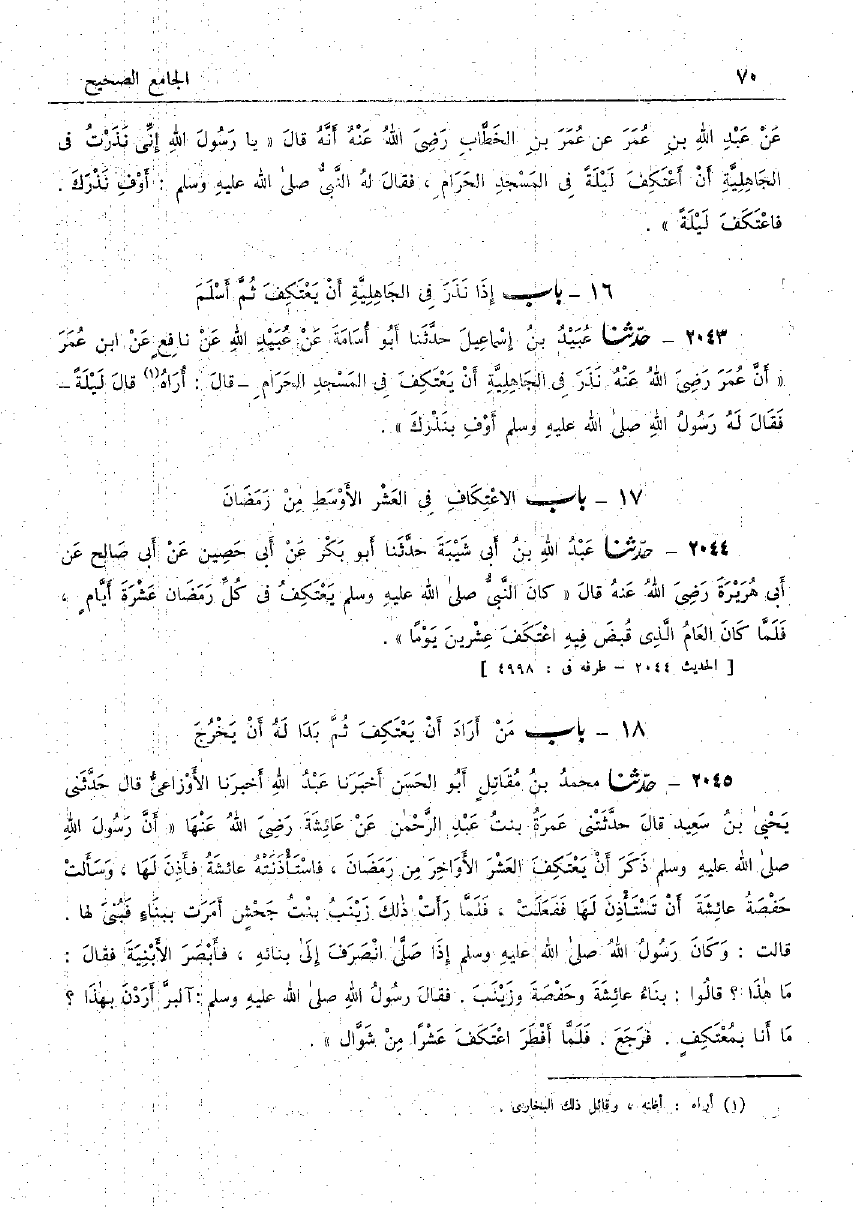 ٧٠ الجامع الصحيح
عَنْ عَبْدِ اللهِ بنِ عُمَرَ عن عُمَرَ بنِ الخَطَّابِ رَضِىَ اللهُ عَنْهُ أَنَّهُ قالَ « يا رَسُولَ اللهِ إنِّى نَذَرْتُ فى
الجَاهِلِيَّةِ أَنْ أَعْتَكِفَ لَيْلَةً فى المَسْجدِ الحَرَامِ ، فقالَ لهُ النَّبىُّ صلىٰ الله عليهِ وسلم : أَوْفِ نَذْرَكَ .
فاعْتَكَفَ لَيْلَةً » .
١٦ – باب إِذَا نَذَرَ فى الجَاهِلِيَّةِ أَنْ يَعْتَكِفَ ثُمَّ أَسْلَمَ
٢٠٤٣ – حدّثنا عُبَيْدُ بنُ إسْماعيلَ حدَّثَنا أبو أُسَامَةَ عَنْ عُبَيْدِ اللهِ عَنْ نافِعٍ عَنْ ابنِ عُمَرَ
« أَنَّ عُمَرَ رَضِىَ اللهُ عَنْهُ نَذَرَ فى الجَاهِلِيَّةِ أَنْ يَعْتَكِفَ فى المَسْجدِ الحَرَامِ – قالَ : أُرَاهُ(١) قالَ لَيْلَةً –
فَقَالَ لَهُ رَسُولُ اللهِ صلىٰ الله عليهِ وسلم أَوْفِ بنَذْرِكَ » .
١٧ – باب الاعْتِكَافِ فى العَشْرِ الأَوْسَطِ مِنْ رَمَضَانَ
٢٠٤٤ – حدّثنا عَبْدُ اللهِ بنُ أبى شَيْبَةَ حدَّثَنا أبو بَكْرٍ عَنْ أبى حَصِينٍ عَنْ أبى صَالِحٍ عَن
أبى هُرَيْرَةَ رَضِىَ اللهُ عَنهُ قالَ « كانَ النَّبىُّ صلىٰ الله عليهِ وسلم يَعْتَكِفُ فى كُلِّ رَمَضَانَ عَشْرَةَ أَيَّامٍ ،
فَلَمَّا كانَ العَامُ الَّذِى قُبضَ فِيهِ اعْتَكَفَ عِشْرِينَ يَوْمًا » .
[ الحديث ٢٠٤٤ – طرفه فى : ٤٩٩٨ ]
١٨ – باب مَنْ أَرَادَ أَنْ يَعْتَكِفَ ثُمَّ بَدَا لَهُ أَنْ يَخْرُجَ
٢٠٤٥ – حدّثنا محمدُ بنُ مُقَاتِلٍ أبُو الحَسَنِ أخبَرَنا عَبْدُ اللهِ أخبرَنا الأَوْزَاعىُّ قال حَدَّثَنى
يَحْيىٰ بنُ سَعِيدٍ قالَ حدَّثَتْنى عَمرَةُ بنتُ عَبْدِ الرَّحْمٰنِ عَنْ عَائِشَةَ رَضِىَ اللهُ عَنْهَا « أَنَّ رَسُولَ اللهِ
صلىٰ الله عليهِ وسلم ذَكَرَ أَنْ يَعْتَكِفَ العَشْرَ الأَوَاخِرَ مِن رَمَضَانَ ، فاسْتَأْذَنَتْهُ عائشَةُ فأذِنَ لَهَا ، وَسَأَلَتْ
حَفْصَةُ عائِشَةَ أَنْ تَسْتَأْذِنَ لَهَا فَفَعَلَتْ ، فَلَمَّا رَأَتْ ذٰلِكَ زَيْنَبُ بنْتُ جَحْشٍ أَمَرَتْ ببِنَاءٍ فَبُنِىَ لها .
قالت : وَكَانَ رَسُولُ اللهُ صلىٰ الله عليهِ وسلم إذَا صَلَّىٰ انْصَرَفَ إلىٰ بنائهِ ، فأبْصَرَ الأَبْنِيَةَ فقالَ :
مَا هٰذَا ؟ قالُوا : بنَاءُ عائِشَةَ وحَفْصَةَ وزَيْنَبَ . فقالَ رسُولُ اللهِ صلىٰ الله عليهِ وسلم : آلبرَّ أَرَدْنَ بهٰذَا ؟
مَا أَنا بمُعْتَكِفٍ . فرَجَعَ . فَلَمَّا أَفْطَرَ اعْتَكَفَ عَشْرًا مِنْ شَوَّال » .
(١) أراه : أظنه ، وقائل ذلك البخارى .